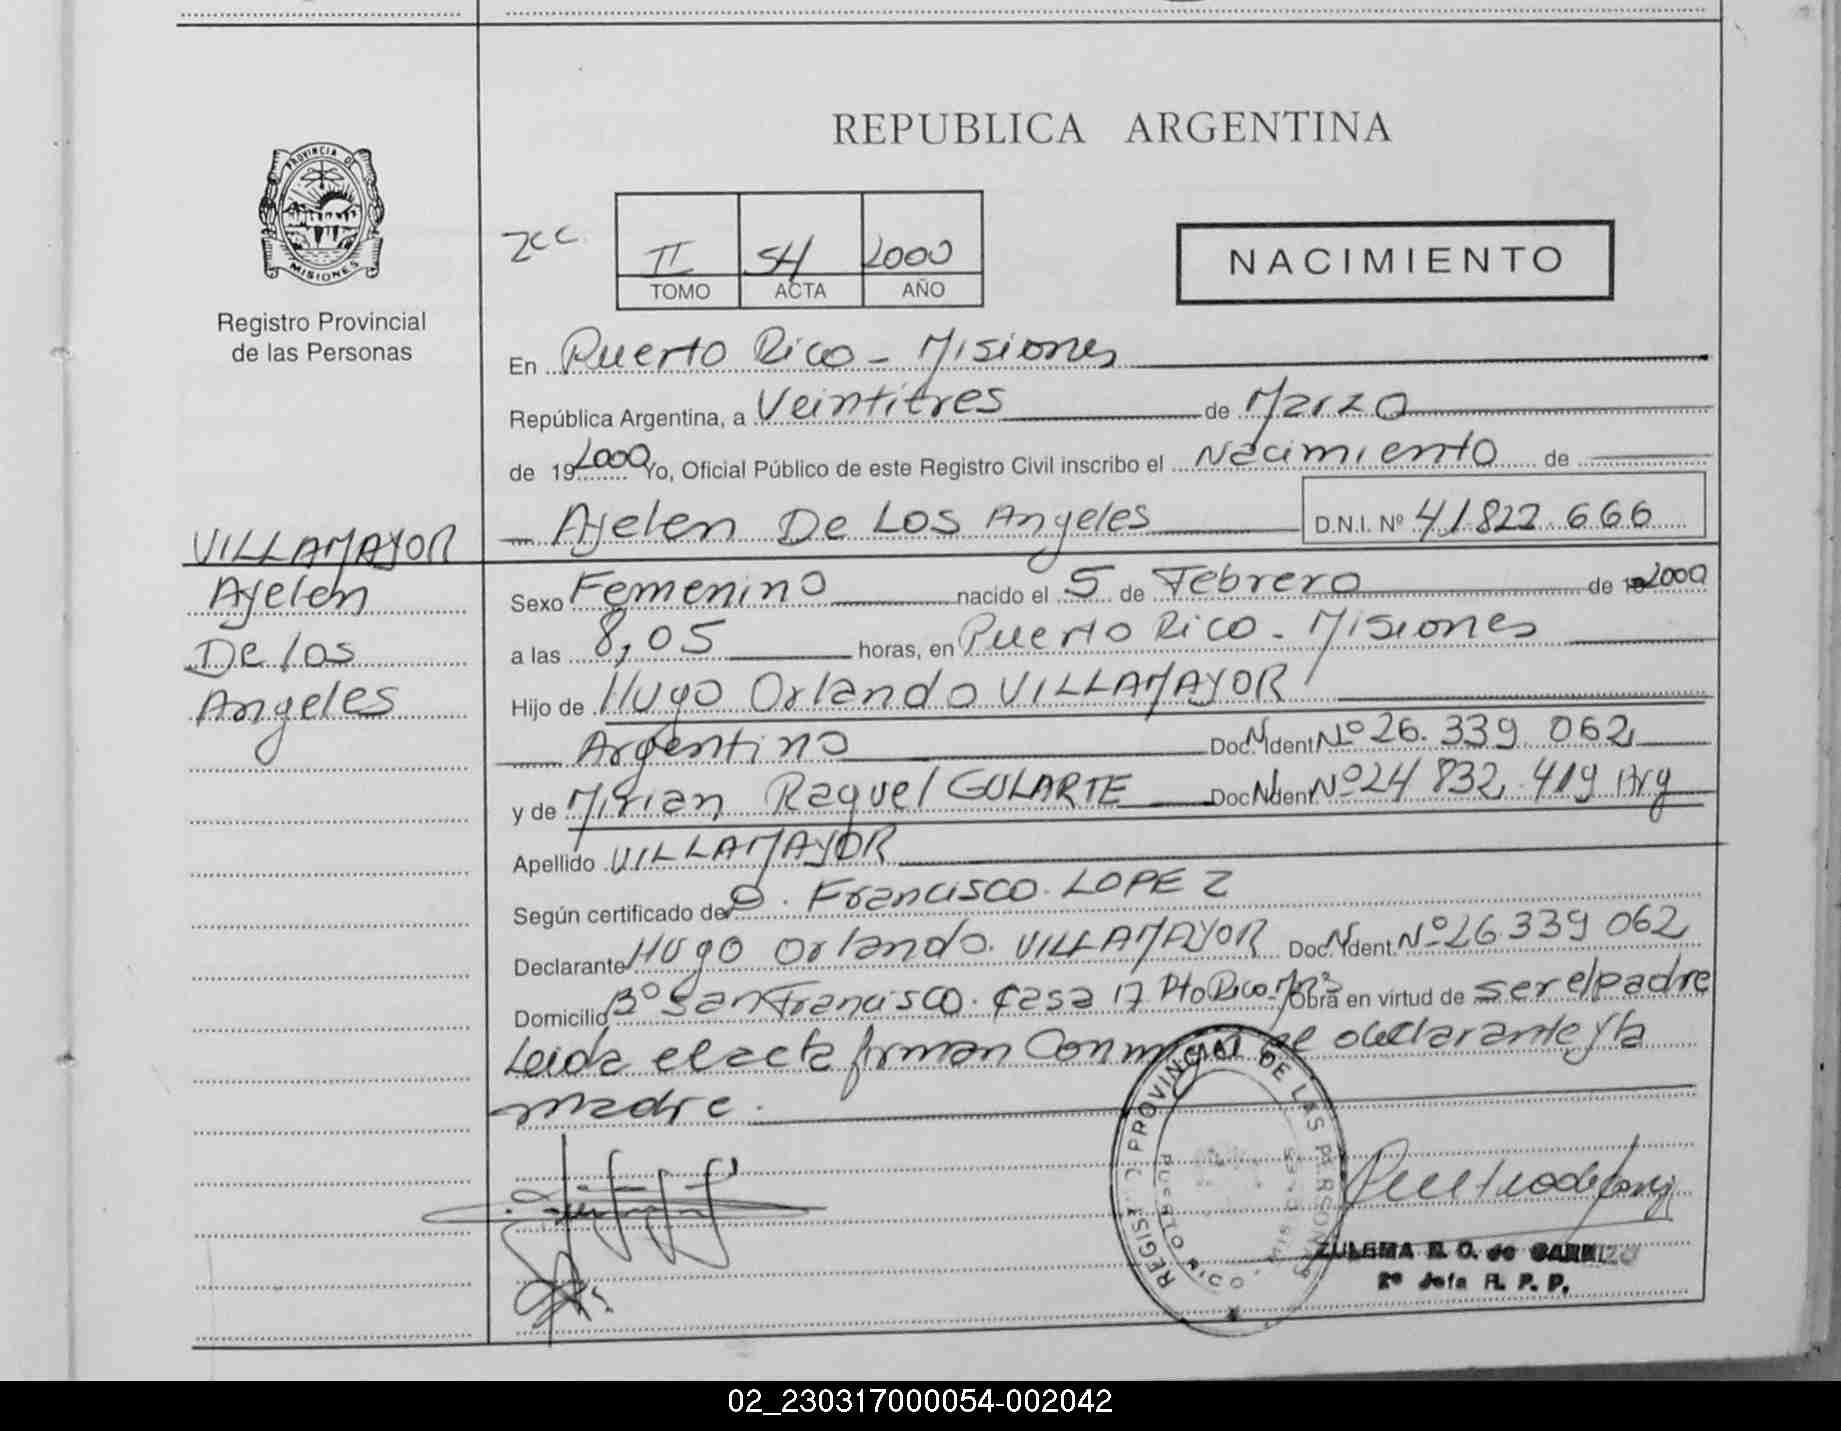 REPUBLICA ARGENTINA
PROVINCIA DE
MISIONES
Registro Provincial
de las Personas
II 54 2000
TOMO ACTA AÑO
NACIMIENTO
En Puerto Rico - Misiones
República Argentina, a Veintitres de Marzo
de 19 2000 Yo, Oficial Público de este Registro Civil inscribo el Nacimiento de
Ayelen De Los Angeles D.N.I. Nº 41.822.666
VILLAMAYOR
Ayelen
De los
Angeles
Sexo Femenino nacido el 5 de Febrero de 2000
a las 8,05 horas, en Puerto Rico - Misiones
Hijo de Hugo Orlando VILLAMAYOR
Argentino Doc. N Ident Nº 26.339 062
y de Mirian Raquel GULARTE Doc N Ident Nº 24 832 419 Arg
Apellido VILLAMAYOR
Según certificado de D. Francisco LOPEZ
Declarante Hugo Orlando VILLAMAYOR Doc. N Ident. Nº 26 339 062
Domicilio Bº San Francisco. Casa 17 Pto Rico Obra en virtud de ser el padre
Leida el acta firman Conmigo el declarante y la
madre.
PROVINCIAL DE LAS PERSONAS
PUERTO RICO
ZULEMA R. O. de
2º Jefa R. P. P.
02_230317000054-002042